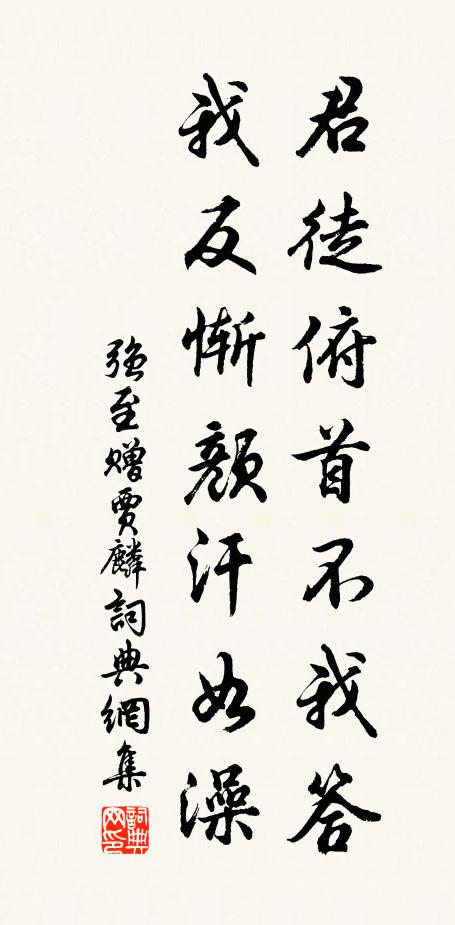 君徒俯首不我答
我反慚顏汗如澡
強至贈賈麟詞典網集
詞典網印